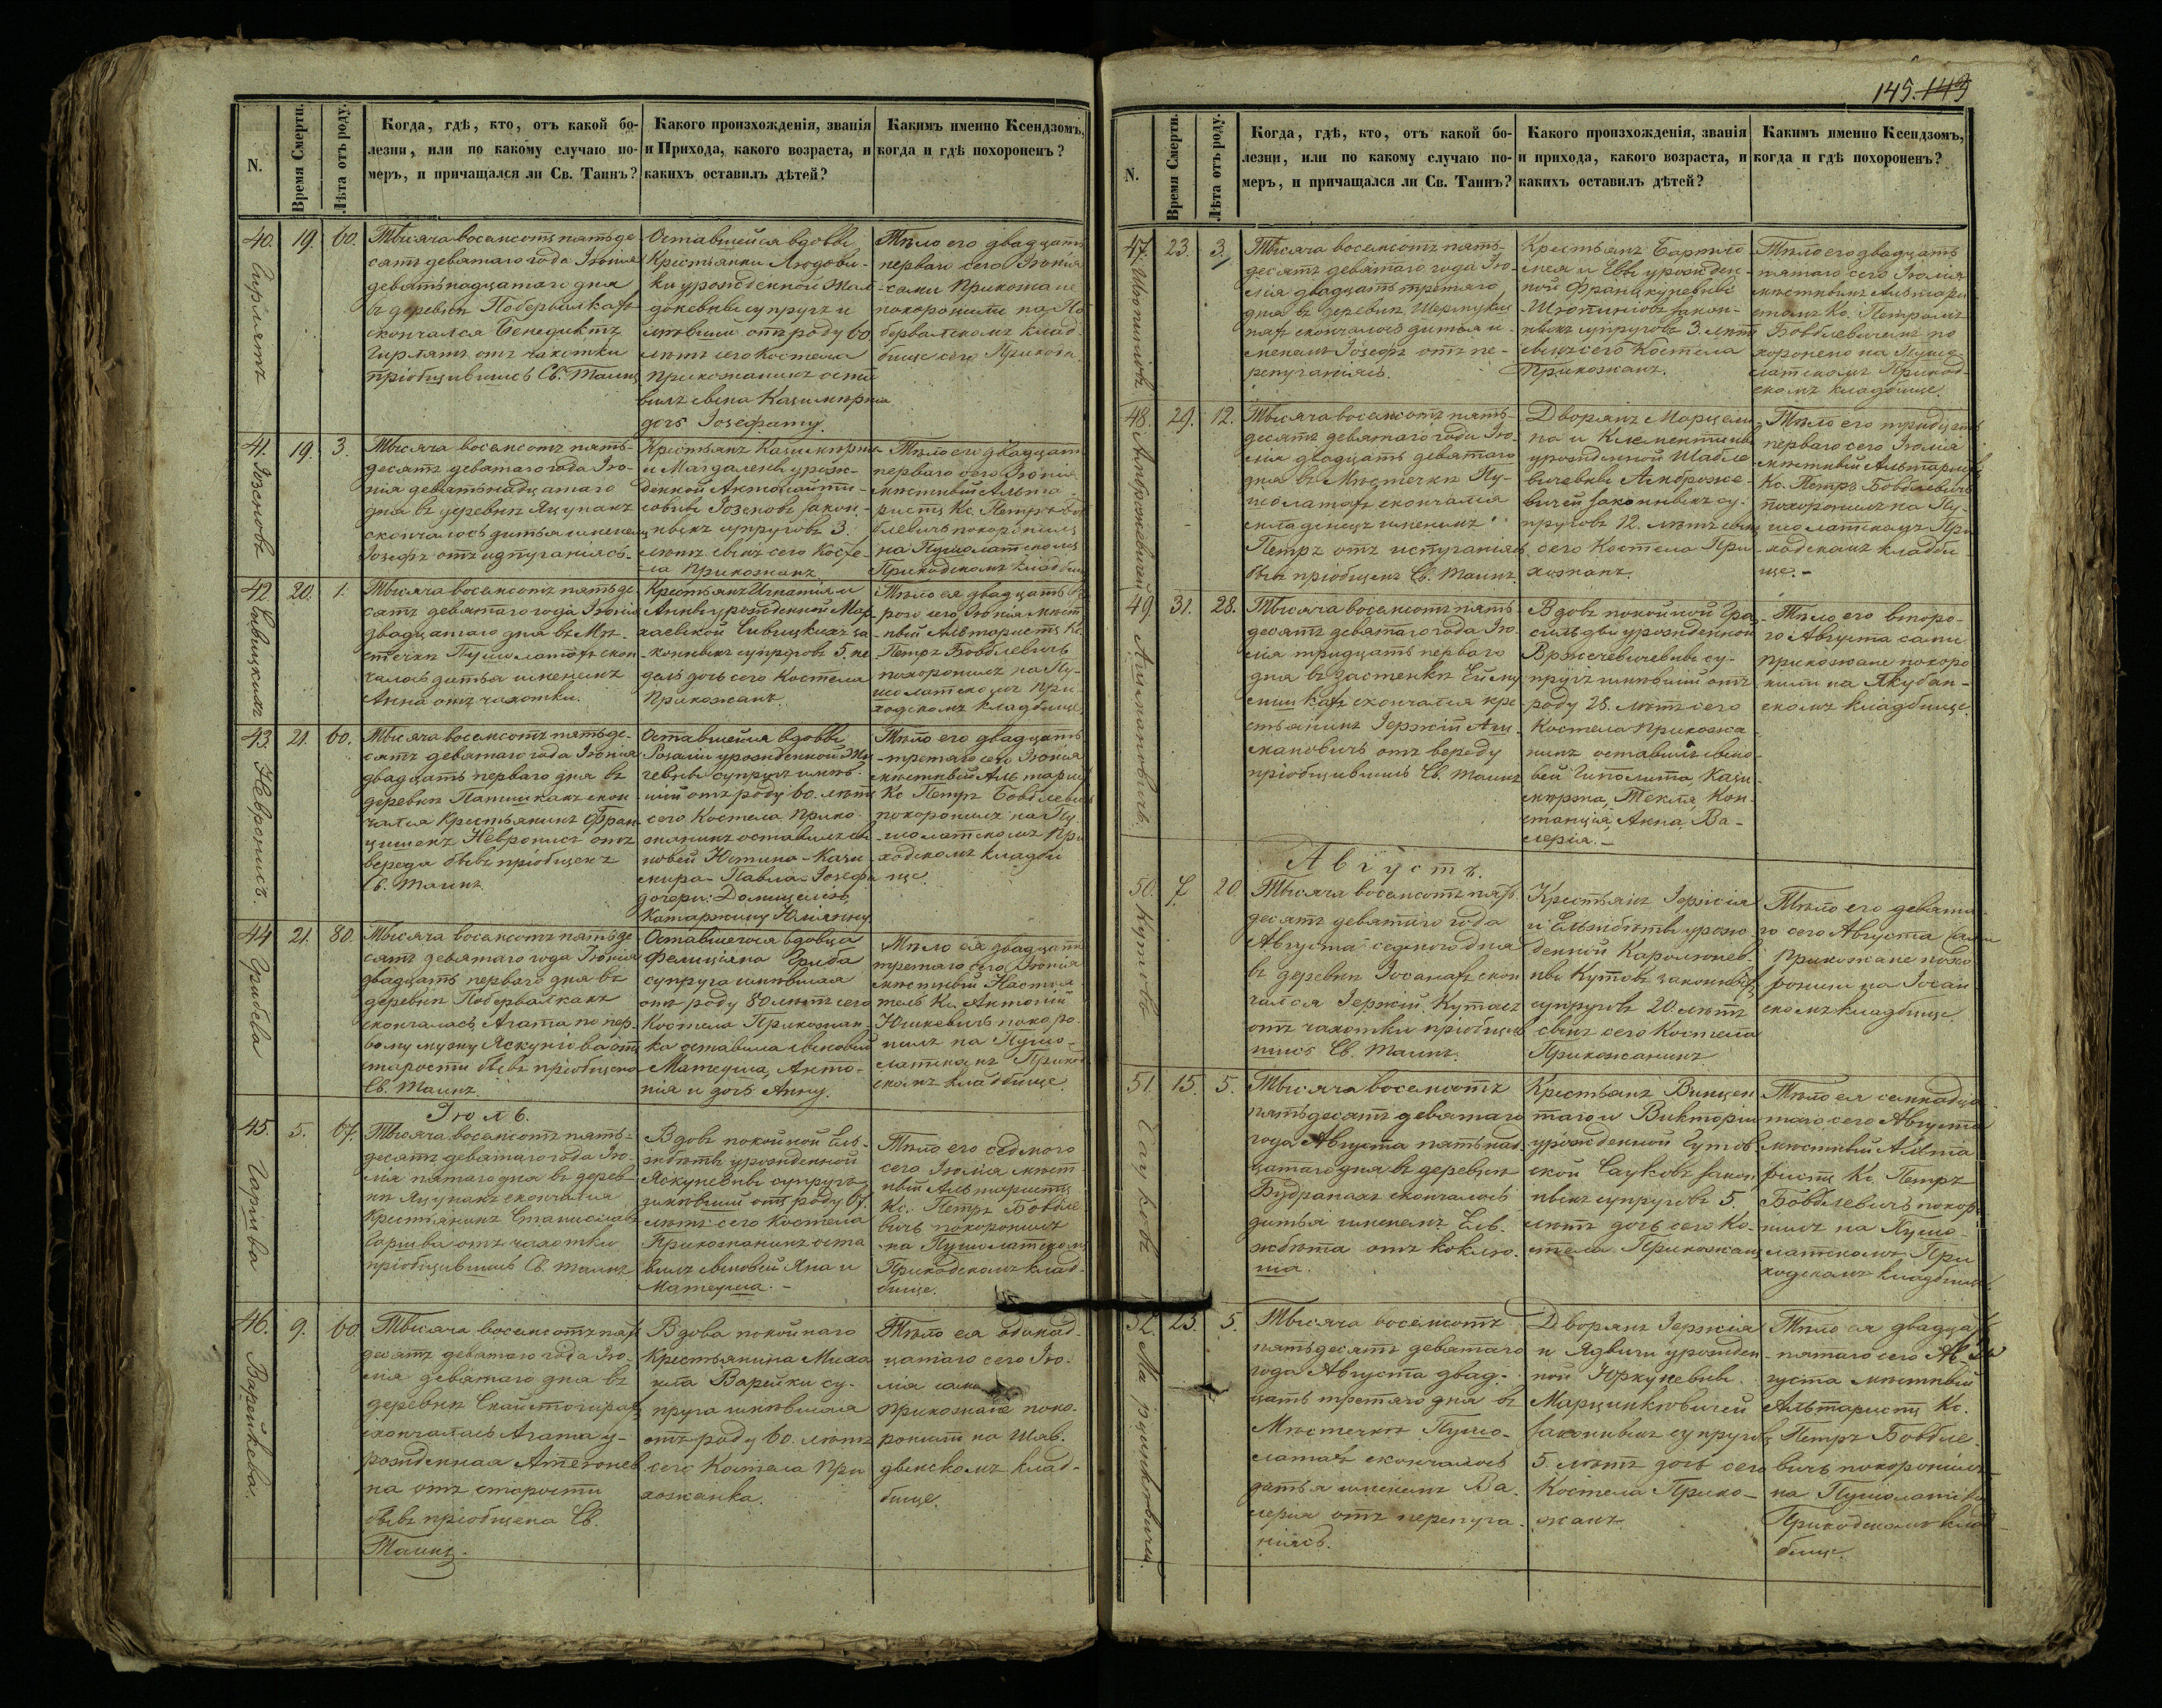 N.
Время Смерти.
Лѣта отъ роду.
Когда, гдѣ, кто, отъ какой бо-
лезни, или по какому случаю по-
меръ, и причащался ли Св. Таинъ?
Какого происхожденія, званія
и Прихода, какого возраста, и
какихъ оставилъ дѣтей?
Какимъ именно Ксендзомъ,
когда и гдѣ похороненъ?
40.
19.
60.
Тысяча восемсотъ пятьде
сятъ девятаго года Іюнія
девятьнадцатаго дня
въ деревни
скончался Бенедиктъ
отъ чахотки
пріобщившись Св. Таинъ
Оставшейся вдовы
Крестьянки Людови-
ки урожденной
супругъ
имѣвший отъ роду 60
лѣтъ сего Костела
прихожанинъ оста
вилъ сына Казимѣржа
дочь Іозефату.
Тѣло его двадцать
перваго сего Іюнія
сами Прихожане
похоронили на По
клад-
бище сего Прихода.
41.
Іозеновъ
19.
3.
Тысяча восемсотъ пять-
десятъ девятаго года Ію-
нія девятьнадцатаго
дня въ деревни Яцунахъ
скончалось дитья именемъ
Іозефъ отъ
Крестьянъ Казимѣржа
и Магдалены урож-
денной
Іозеновъ закон-
ныхъ супруговъ 3.
лѣтъ сынъ сего Косте-
ла Прихожанъ.
Тѣло его двадцать
перваго сего Іюнія
мѣстный Альта-
ристъ Кс. Петръ Бов
блевичъ похоронилъ
на Пушолатскомъ
Приходскомъ кладбищѣ
42.
20.
1.
Тысяча восемсотъ пятьде
сятъ девятаго года Іюнія
двадцатаго дня въ Мѣ-
стечки Пушолатахъ скон
чалось дитья именемъ
Анна отъ чахотки.
Крестьянъ Игнатія и
Анны урожденной
за-
конныхъ супруговъ 5. не
дель дочь сего Костела
Прихожанъ.
Тѣло ея двадцать
рого сего Іюнія мѣст
ный Альтаристъ Кс.
Петръ Бовблевичъ
похоронилъ на Пу-
шолатскомъ При-
ходскомъ кладбище.
43.
Невронисъ.
21.
60.
Тысяча восемсотъ пятьде-
сятъ девятаго года Іюнія
двадцать перваго дня въ
деревни скон
чался Крестьянинъ Фран
цишекъ Невронисъ отъ
вереда бывъ пріобщенъ
Св. Таинъ.
Оставшейся вдовы
Розаліи урожденной
супругъ имѣв-
шій отъ роду 60. лѣтъ
сего Костела прихо
жанинъ оставилъ сы
новей Юстина - Кази
мира - Павла - Іозефа
дочери: Доминцелію,
Катаржину Юліянну.
Тѣло его двадцать
третяго сего Іюнія
мѣстный Альтаристъ
Кс Петръ Бовблевичъ
похоронилъ на Пу-
шолатскомъ При
ходскомъ кладби
ще.
44
Грибева
21.
80.
Тысяча восемсотъ пятьде
сятъ девятаго года Іюнія
двадцать перваго дня въ
деревни
скончалась Агата по пер-
вому мужу отъ
старости бывъ пріобщена
Св. Таинъ.
Оставшегося вдовца
Фелиціяна Гриба
супруга имѣвшая
отъ роду 80 лѣтъ сего
Костела Прихожан-
ка оставила сыновей
Матеуша, Анто-
нія и дочь Анну.
Тѣло ея двадцать
третяго сего Іюнія
мѣстный Настоя-
тель Кс. Антоній
Юшкевичъ похоро
нилъ на Пушо-
латскомъ Приход
скомъ кладбище.
Іюль.
45.
5.
67.
Тысяча восемсотъ пять-
десятъ девятаго года Ію-
лія пятаго дня въ дерев-
ни Яцунахъ скончался
Крестьянинъ Станиславъ
отъ чахотки
пріобщившись Св. Таинъ
Вдовъ покойной Ель-
жбѣты урожденной
Яскуневны супругъ
имѣвший отъ роду 67.
лѣтъ сего Костела
Прихожанинъ оста
вилъ сыновей Яна и
Матеуша.-
Тѣло его седмого
сего Іюлія мѣст-
ный Альтаристъ
Кс. Петръ Бовбле
вичъ похоронилъ
на Пушолатскомъ
Приходскомъ клад-
бище.
46.
Варейкова.
9.
60
Тысяча восемсотъ пять
десятъ девятаго года Ію-
лія девятаго дня въ
деревни
скончалась Агата у-
рожденная
на отъ старости
бывъ пріобщена Св.
Таинъ.
Вдова покойнаго
Крестьянина Миха
ила Варейки су-
пруга имѣвшая
отъ роду 60. лѣтъ
сего Костела При
хожанка.
Тѣло ея одинад-
цатаго сего Ію-
лія сами
прихожане похо-
ронили на
клад-
бище.
145. 143
N.
Время Смерти.
Лѣта отъ роду.
Когда, гдѣ, кто, отъ какой бо-
лезни, или по какому случаю по-
меръ, и причащался ли Св. Таинъ?
Какого происхожденія, званія
и прихода, какого возраста, и
какихъ оставилъ дѣтей?
Какимъ именно Ксендзомъ,
когда и гдѣ похороненъ?
47.
23.
3.
Тысяча восемсотъ пять-
десятъ девятаго года Ію-
лія двадцать третяго
дня въ деревни
скончалось дитья и-
менемъ Іозефъ отъ пе-
репуганіясь.
Крестьянъ Бартло
мея и Евы урожден-
ной Францкуневны
закон-
ныхъ супруговъ 3. лѣтъ
сынъ сего Костела
Прихожанъ.
Тѣло его двадцать
пятаго сего Іюлія
мѣстнымъ Альтари
стомъ Кс. Петромъ
Бовблевичемъ по
хоронено на Пушо
латскомъ Приход-
скомъ кладбище.
48.
Амброжевичей
29.
12.
Тысяча восемсотъ пять-
десятъ девятаго года Ію-
лія двадцать девятаго
дня въ Мѣстечки Пу-
шолатахъ скончался
младенецъ именемъ
Петръ отъ испуганіясь
былъ пріобщенъ Св. Таинъ.
Дворянъ Марцели-
на и Клементины
урожденной Шабле-
вичевны Амброже-
вичей законныхъ су-
пруговъ 12. лѣтъ сынъ
сего Костела При
хожанъ.
Тѣло его тридцать
перваго сего Іюлія
мѣстный Альтаристъ
Кс. Петръ Бовблевичъ
похоронилъ на Пу-
шолатскомъ При
ходскомъ кладби-
ще.-
49.
31.
28.
Тысяча восемсотъ пять-
десятъ девятаго года Ію-
лія тридцать перваго
дня въ застенки
скончался кре
стьянинъ Іержій
отъ вереду
пріобщившись Св. Таинъ
Вдовъ покойной
урожденной
су-
пругъ имѣвший отъ
роду 28. лѣтъ сего
Костела прихожа-
нинъ оставилъ сыно-
вей Гиполита, Кази-
мѣржа, Текля, Кон-
станція, Анна, Ва-
лерія.-
Тѣло его второ-
го Августа сами
прихожане похоро
нили на Якубан-
скомъ кладбище.
Августъ.
50.
Кутовъ
7.
20
Тысяча восемсотъ пять
десятъ девятаго года
Августа седмого дня
въ деревни скон
чался Іержій
отъ чахотки пріобщив
шись Св. Таинъ.
Крестьянъ Іержія
и Ельжбѣты урож
денной
Кутовъ законныхъ
супруговъ 20. лѣтъ
сынъ сего Костела
Прихожанинъ
Тѣло его девята-
го сего Августа сами
Прихожане похо
ронили на
скомъ кладбище.
51.
Сауковъ
15.
5.
Тысяча восемсотъ
пятьдесятъ девятаго
года Августа пятьнад
цатаго дня въ деревни
Будранахъ скончалось
дитья именемъ Ель-
жбѣта отъ коклю-
ша.
Крестьянъ Винцен
таго и Викторіи
урожденной
Сауковъ закон
ныхъ супруговъ 5.
лѣтъ дочь сего Ко-
стела Прихожанъ
Тѣло ея семнадца
таго сего Августа
мѣстный Альта
ристъ Кс. Петръ
Бовблевичъ похоро
нилъ на Пушо-
латскомъ При
ходскомъ кладбище.
52.
Марцинкевичей.
23.
5.
Тысяча восемсотъ
пятьдесятъ девятаго
года Августа двад-
цать третяго дня въ
Мѣстечки Пушо-
латахъ скончалось
дитья именемъ Ва-
лерія отъ перепуга-
ніясь.
Дворянъ Іержія
и Ядвиги урожден
ной Юркуневны
Марцинкевичей
законныхъ супруговъ
5 лѣтъ дочь сего
Костела Прихо-
жанъ
Тѣло ея двадца
пятаго сего Ав-
густа мѣстный
Альтаристъ Кс.
Петръ Бовбле-
вичъ похоронилъ
на
Приходскомъ клад
бище.